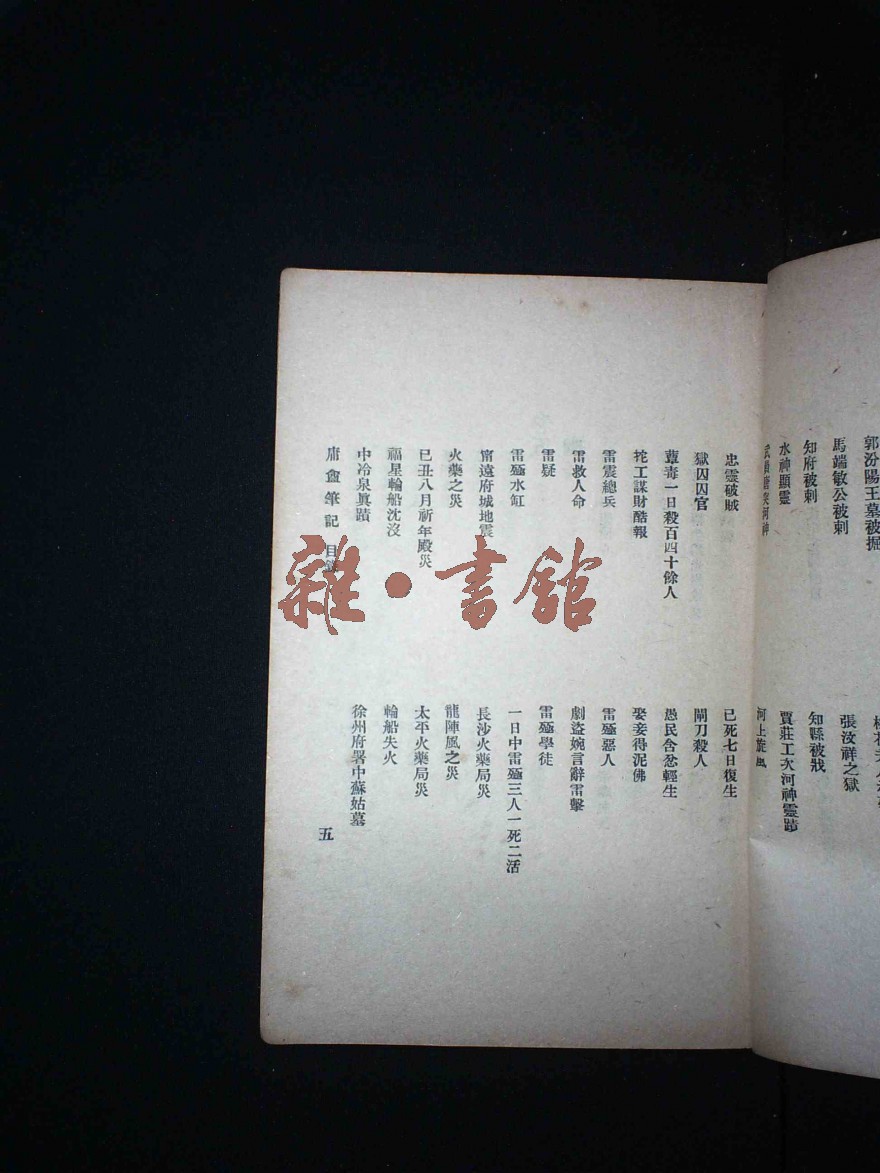 郭汾陽王墓被掘
馬端敏公被刺
張汶祥之獄
知府被刺
知縣被戕
水神顯靈
賈莊工次河神靈蹟
河上旋風
忠靈破賊
已死七日復生
獄囚囚官
閘刀殺人
蕈毒一日殺百四十餘人
愚民含忿輕生
挓工謀財酷報
娶妾得泥佛
雷震總兵
雷殛惡人
雷救人命
劇盜婉言辭雷擊
雷疑
雷殛學徒
雷殛水缸
一日中雷殛三人一死二活
甯遠府城地震
長沙火藥局災
火藥之災
龍陣風之災
己丑八月祈年殿災
太平火藥局災
福星輪船沈沒
輪船失火
中冷泉眞蹟
徐州府署中蘇姑墓
庸盦筆記 目錄
五
雜·書館